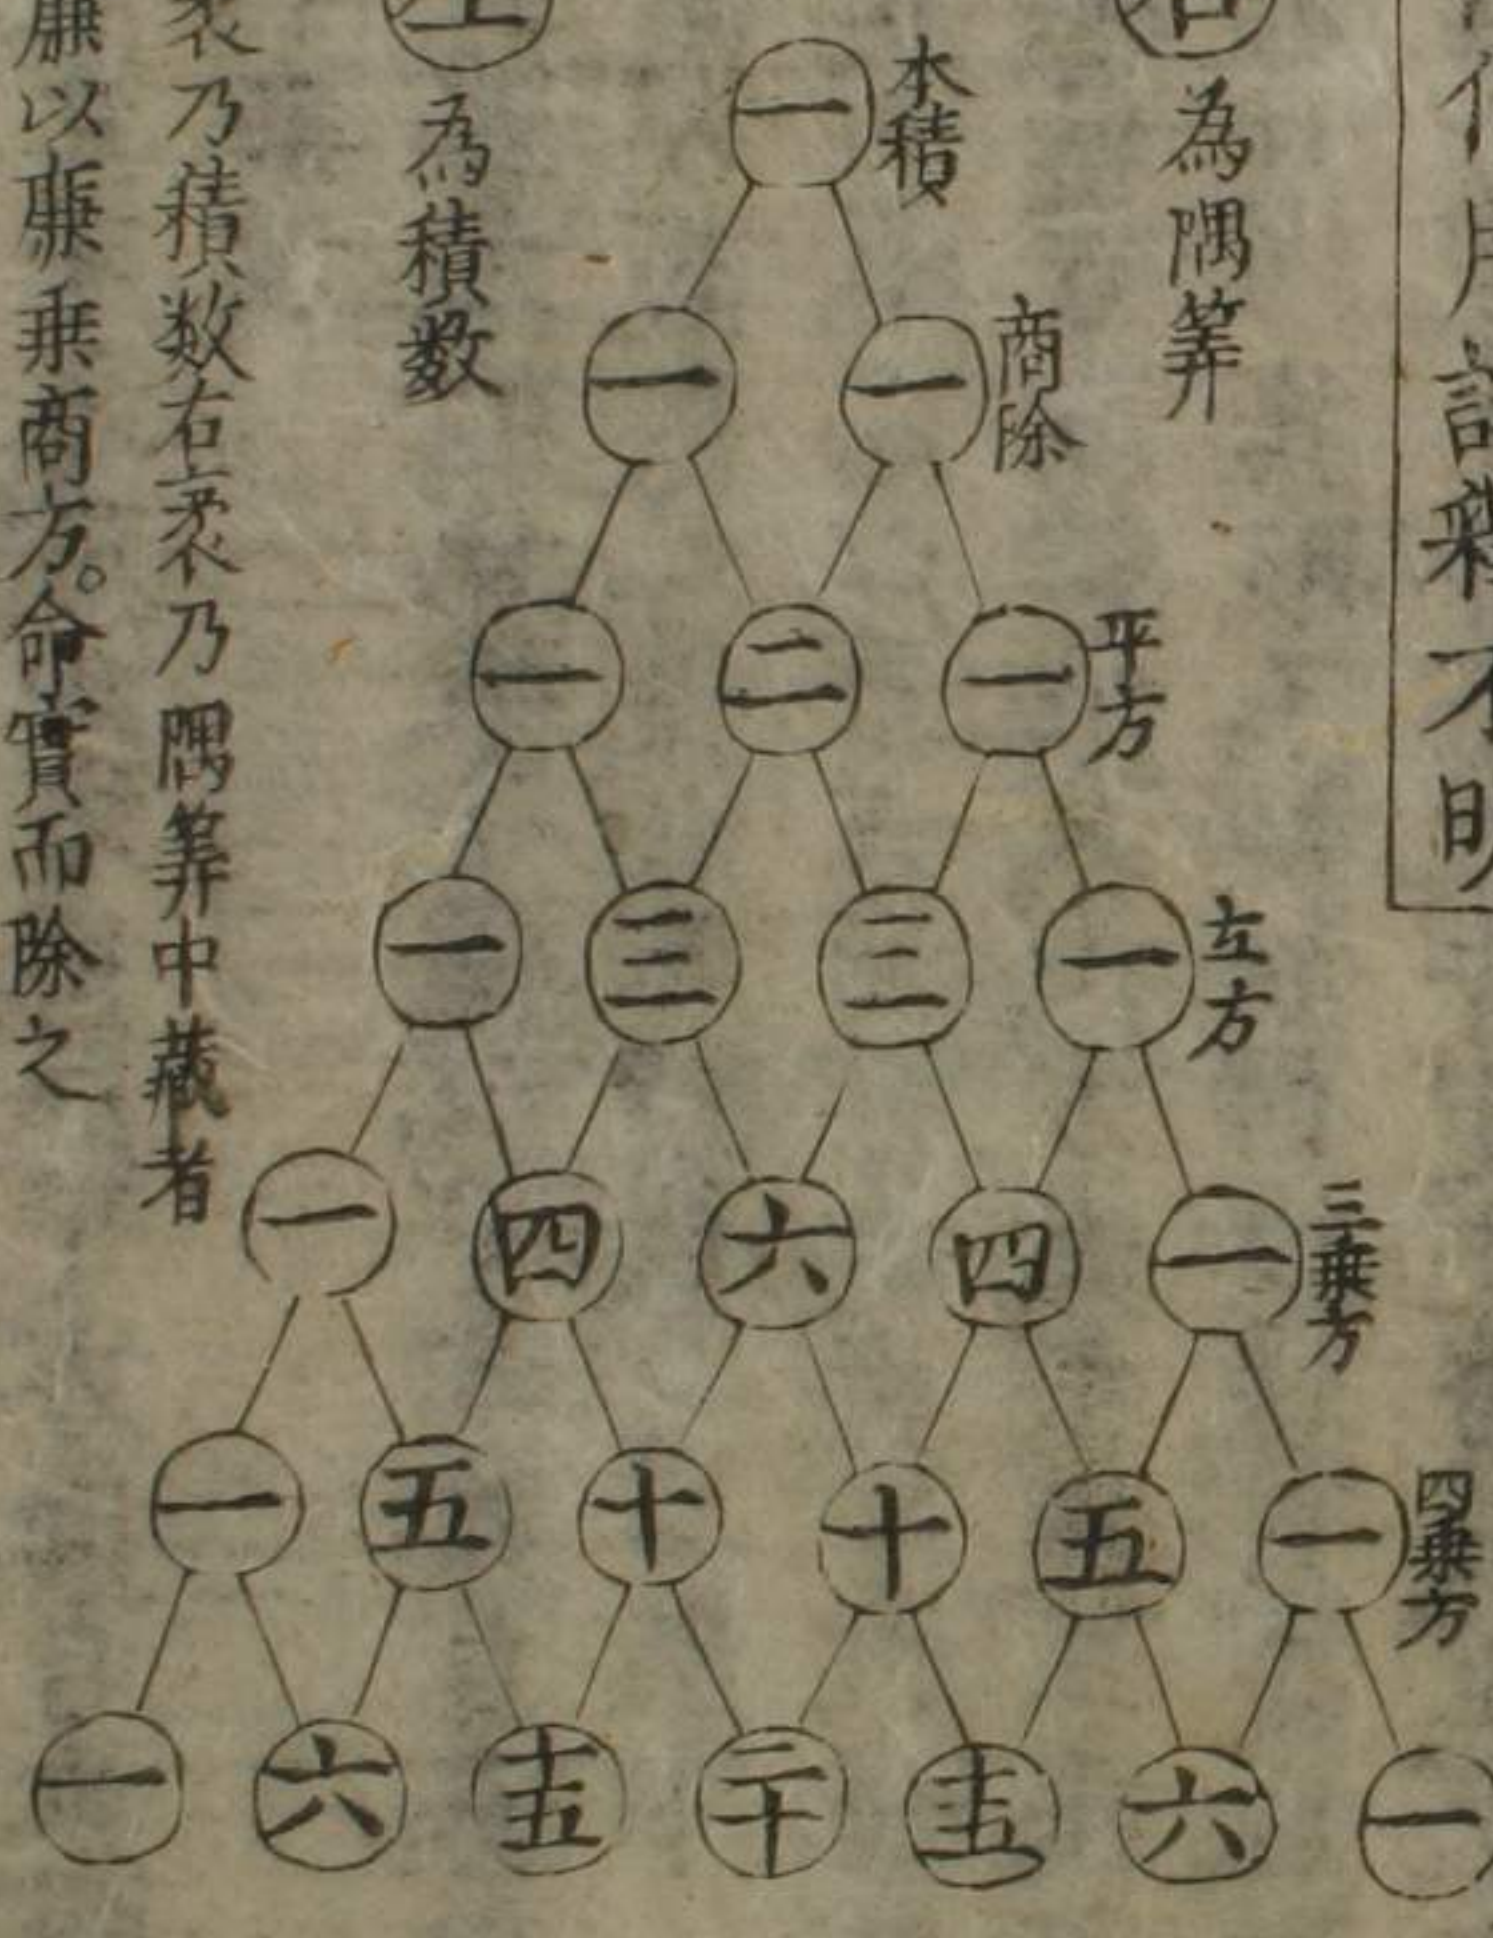 為隅筭
本積
一
商除
一 一
平方
一 二 一
立方
一 三 三 一
三乗方
一 四 六 四 一
四乗方
一 五 十 十 五 一
一 六 十五 二十 十五 六 一
為積數
乃積数右袤乃隅筭中蔵者
廉以廉乗商方。命實而除之